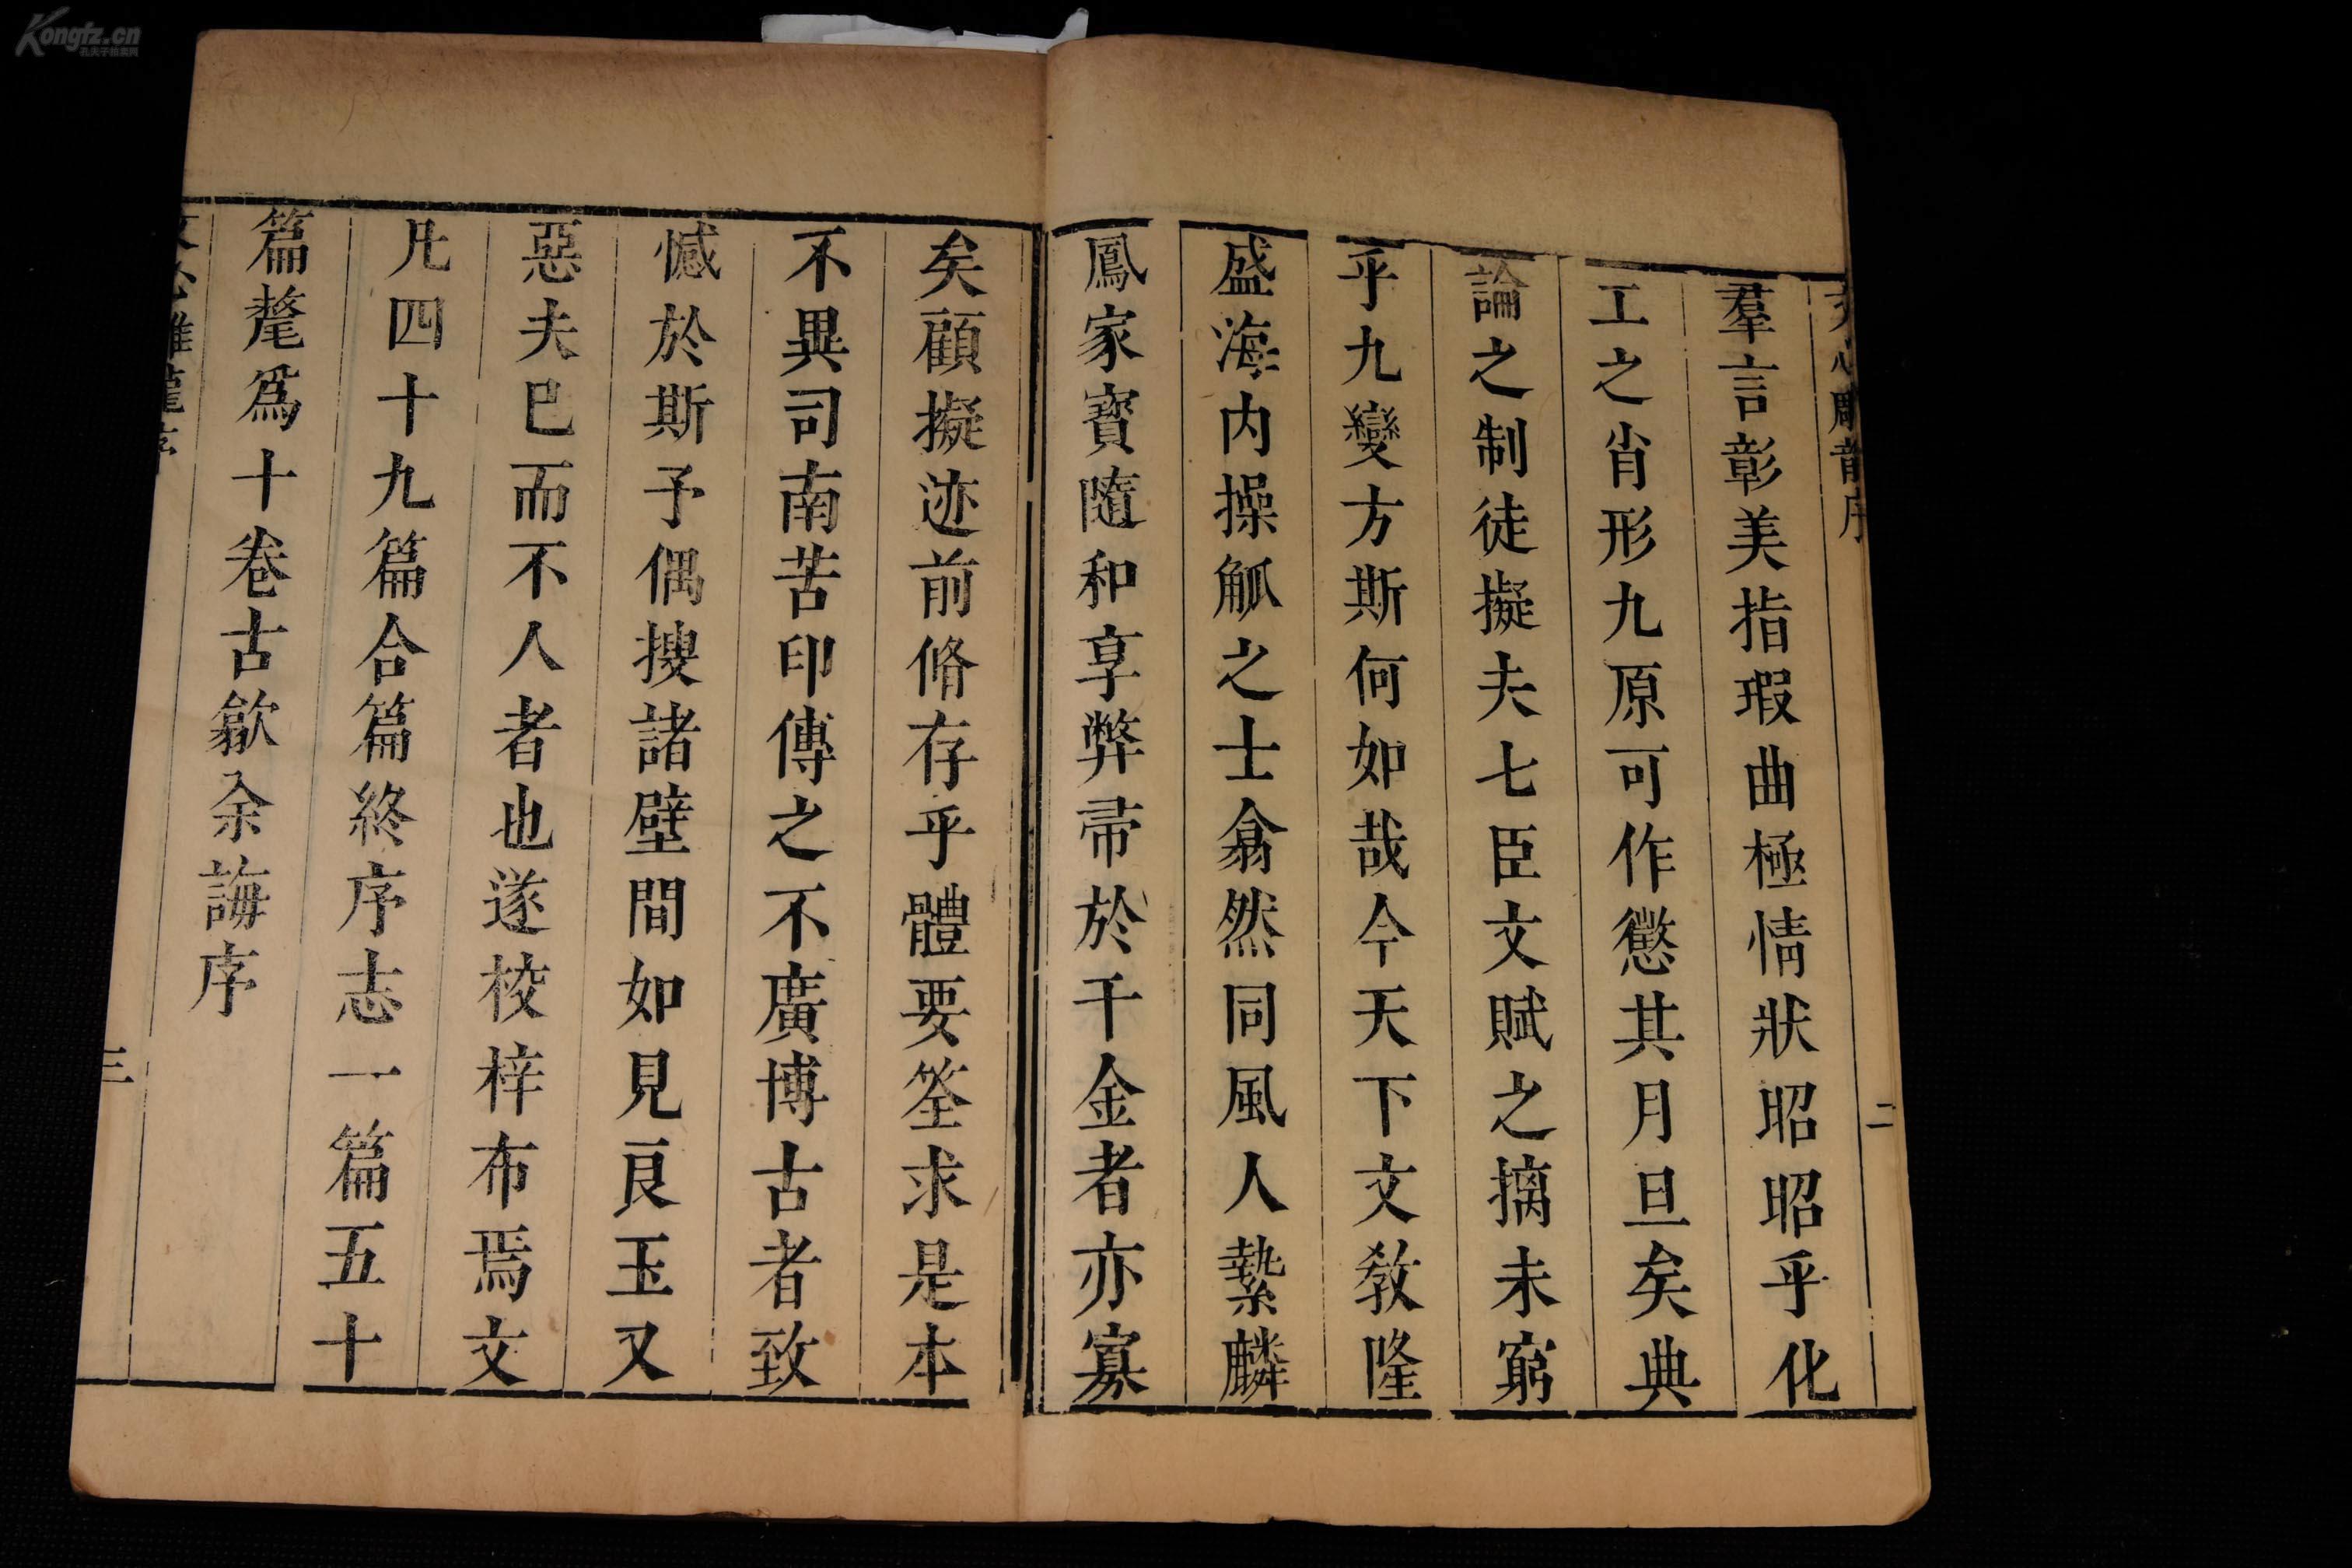 文心雕龍序
二
羣言彰美指瑕曲極情狀昭昭乎化
工之肖形九原可作懲其月旦矣典
論之制徒擬夫七臣文賦之摛未窮
乎九變方斯何如哉今天下文敎隆
盛海内操觚之士翕然同風人縶麟
鳳家寳隨和享弊帚於千金者亦寡
矣顧擬迹前脩存乎體要筌求是本
不異司南苦印傳之不廣博古者致
憾於斯予偶搜諸壁間如見良玉又
惡夫巳而不人者也遂校梓布焉文
凡四十九篇合篇終序志一篇五十
篇氂爲十卷古歙余誨序
文心雕龍序
三
Kongfz.cn
孔夫子拍卖网